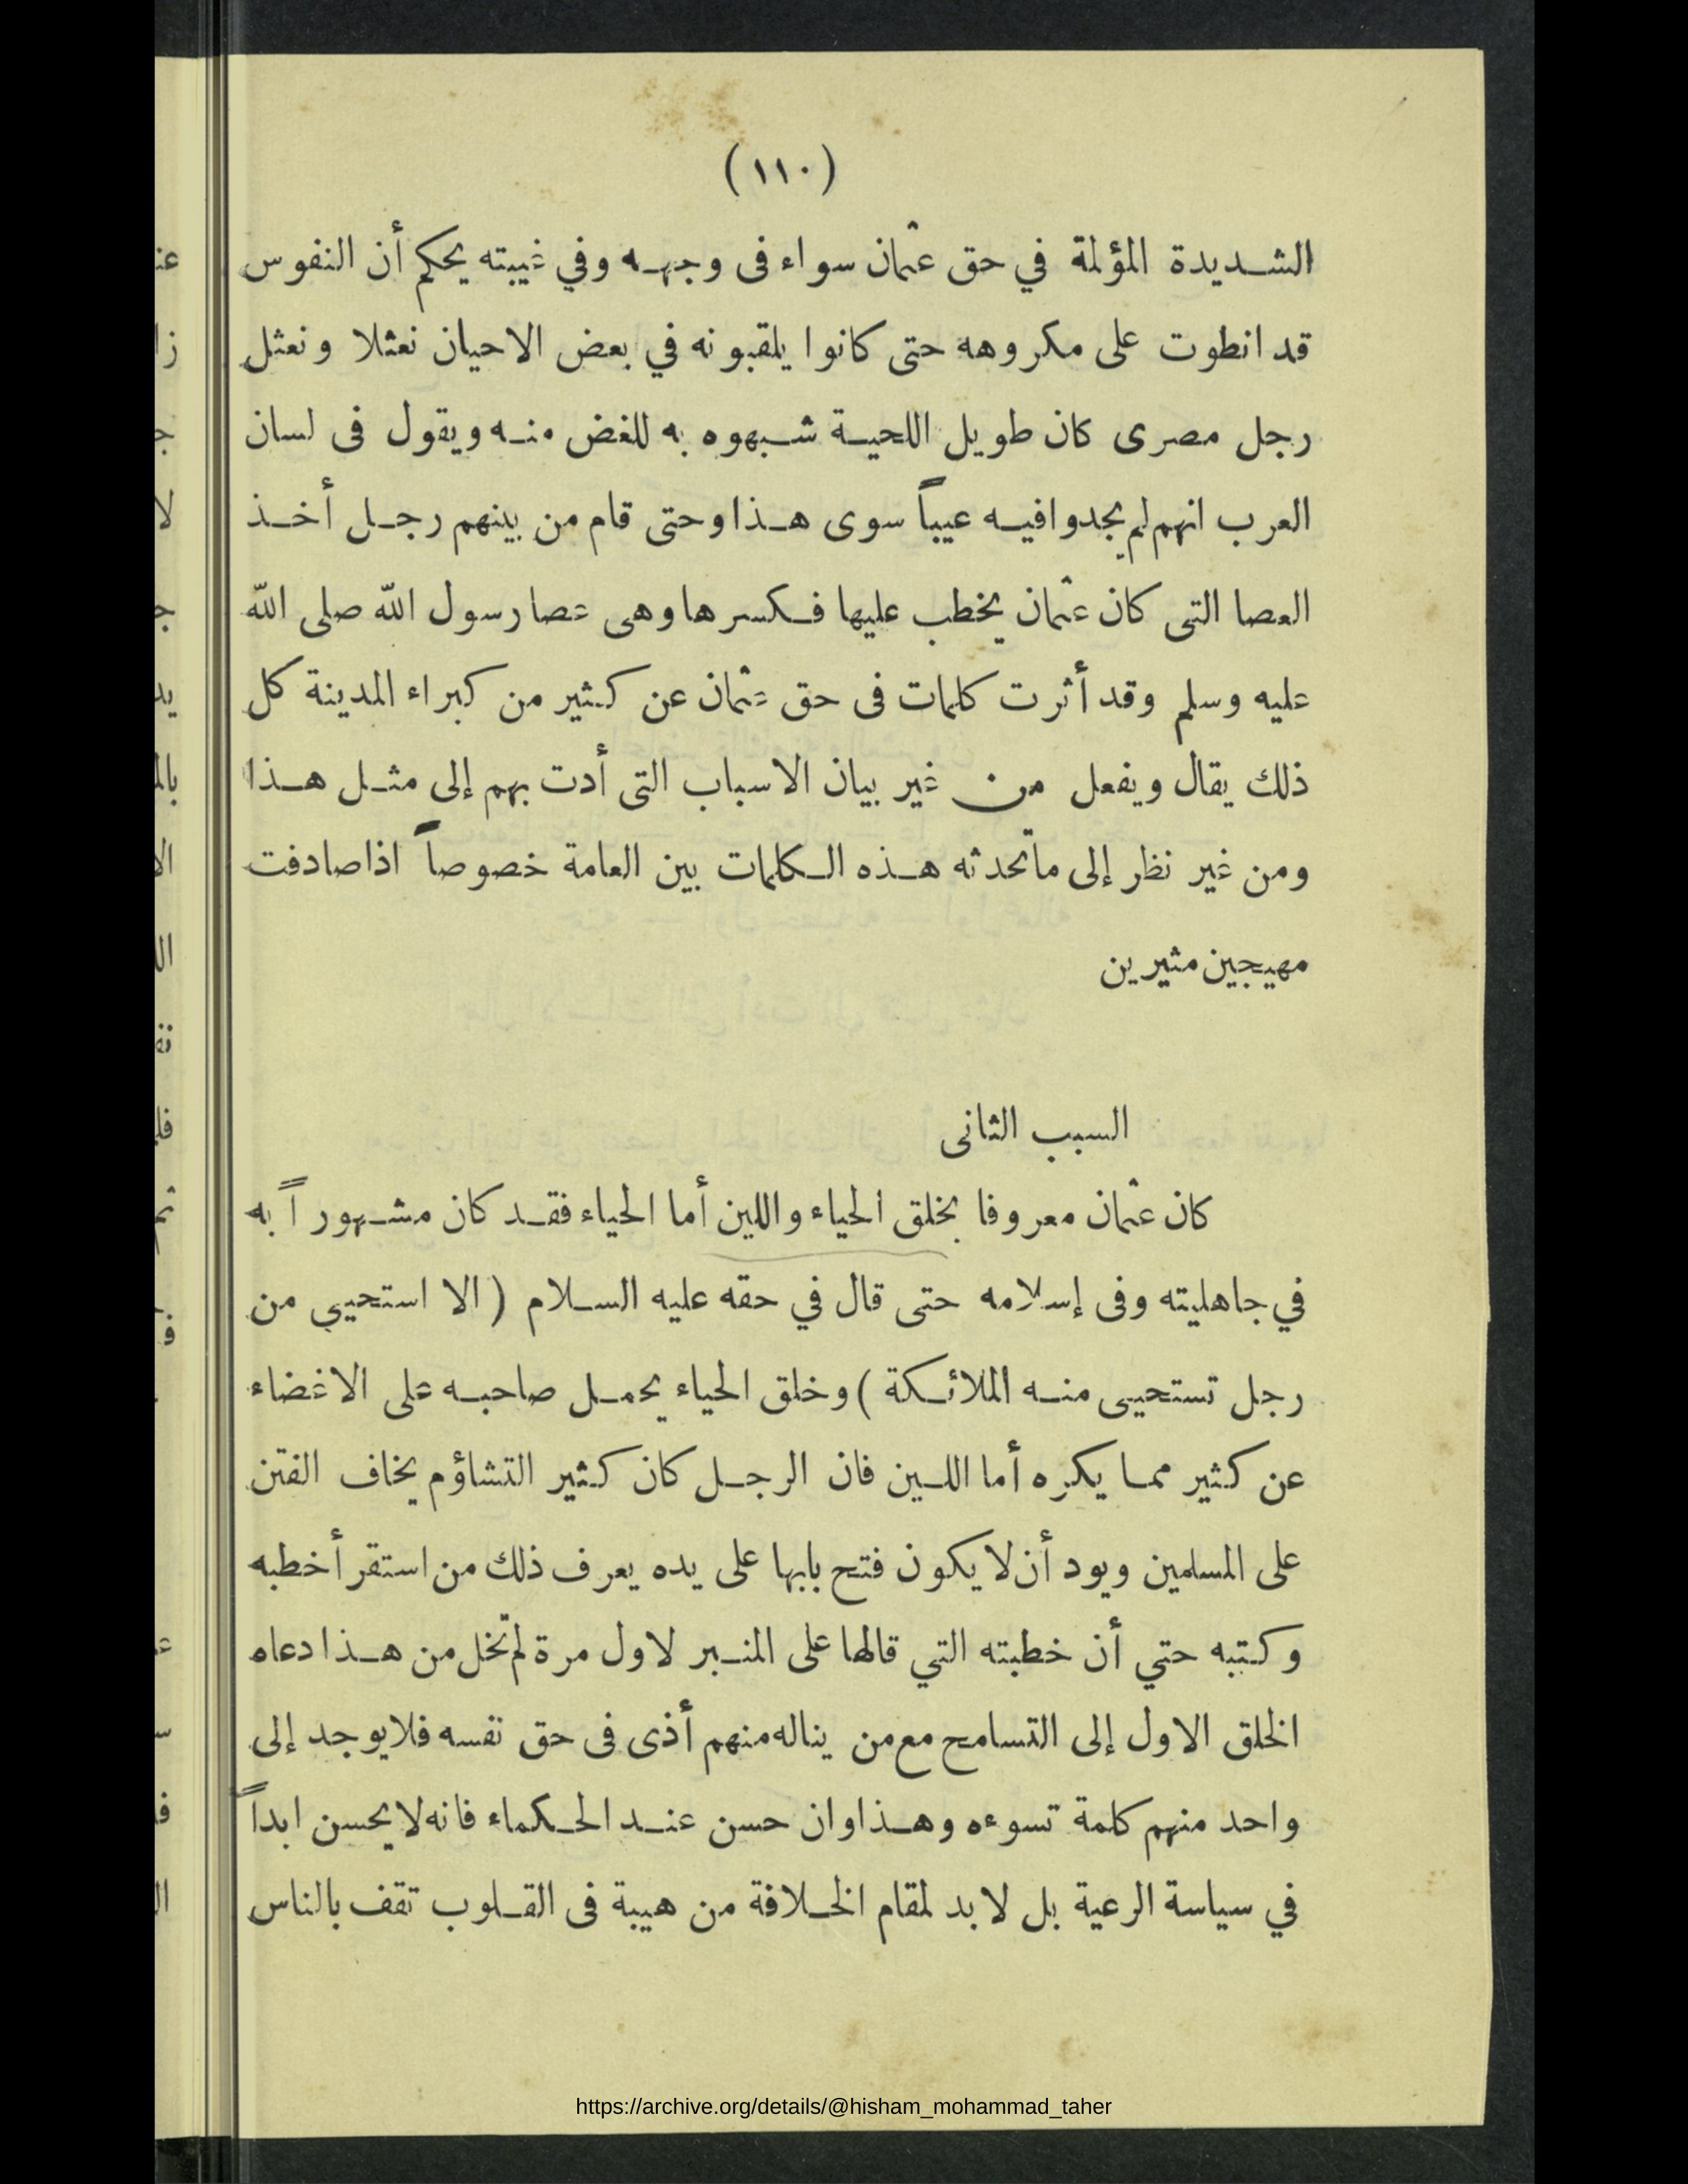 (١١٠)
الشديدة المؤلمة في حق عثمان سواء فى وجهه وفي غيبته يحكم أن النفوس
قد انطوت على مكروهه حتى كانوا يلقبونه في بعض الاحيان نعثلا ونعثل
رجل مصرى كان طويل اللحية شبهوه به للغض منه ويقول فى لسان
العرب انهم لم يجدوا فيه عيباً سوى هذا وحتى قام من بينهم رجل أخذ
العصا التى كان عثمان يخطب عليها فكسرها وهى عصا رسول الله صلى الله
عليه وسلم وقد أثرت كلمات فى حق عثمان عن كثير من كبراء المدينة كل
ذلك يقال ويفعل من غير بيان الاسباب التى أدت بهم إلى مثل هذا
ومن غير نظر إلى ما تحدثه هذه الكلمات بين العامة خصوصاً اذا صادفت
مهيجين مثيرين
السبب الثانى
كان عثمان معروفا بخلق الحياء واللين أما الحياء فقد كان مشهوراً به
في جاهليته وفى إسلامه حتى قال في حقه عليه السلام (الا استحيي من
رجل تستحيى منه الملائكة) وخلق الحياء يحمل صاحبه على الاغضاء
عن كثير مما يكره أما اللين فان الرجل كان كثير التشاؤم يخاف الفتن
على المسلمين ويود أن لا يكون فتح بابها على يده يعرف ذلك من استقرأ خطبه
وكتبه حتي أن خطبته التي قالها على المنبر لاول مرة لم تخل من هذا دعاه
الخلق الاول إلى التسامح مع من يناله منهم أذى فى حق نفسه فلا يوجد إلى
واحد منهم كلمة تسوءه وهذا وان حسن عند الحكماء فانه لا يحسن ابداً
في سياسة الرعية بل لا بد لمقام الخلافة من هيبة فى القلوب تقف بالناس
https://archive.org/details/@hisham_mohammad_taher